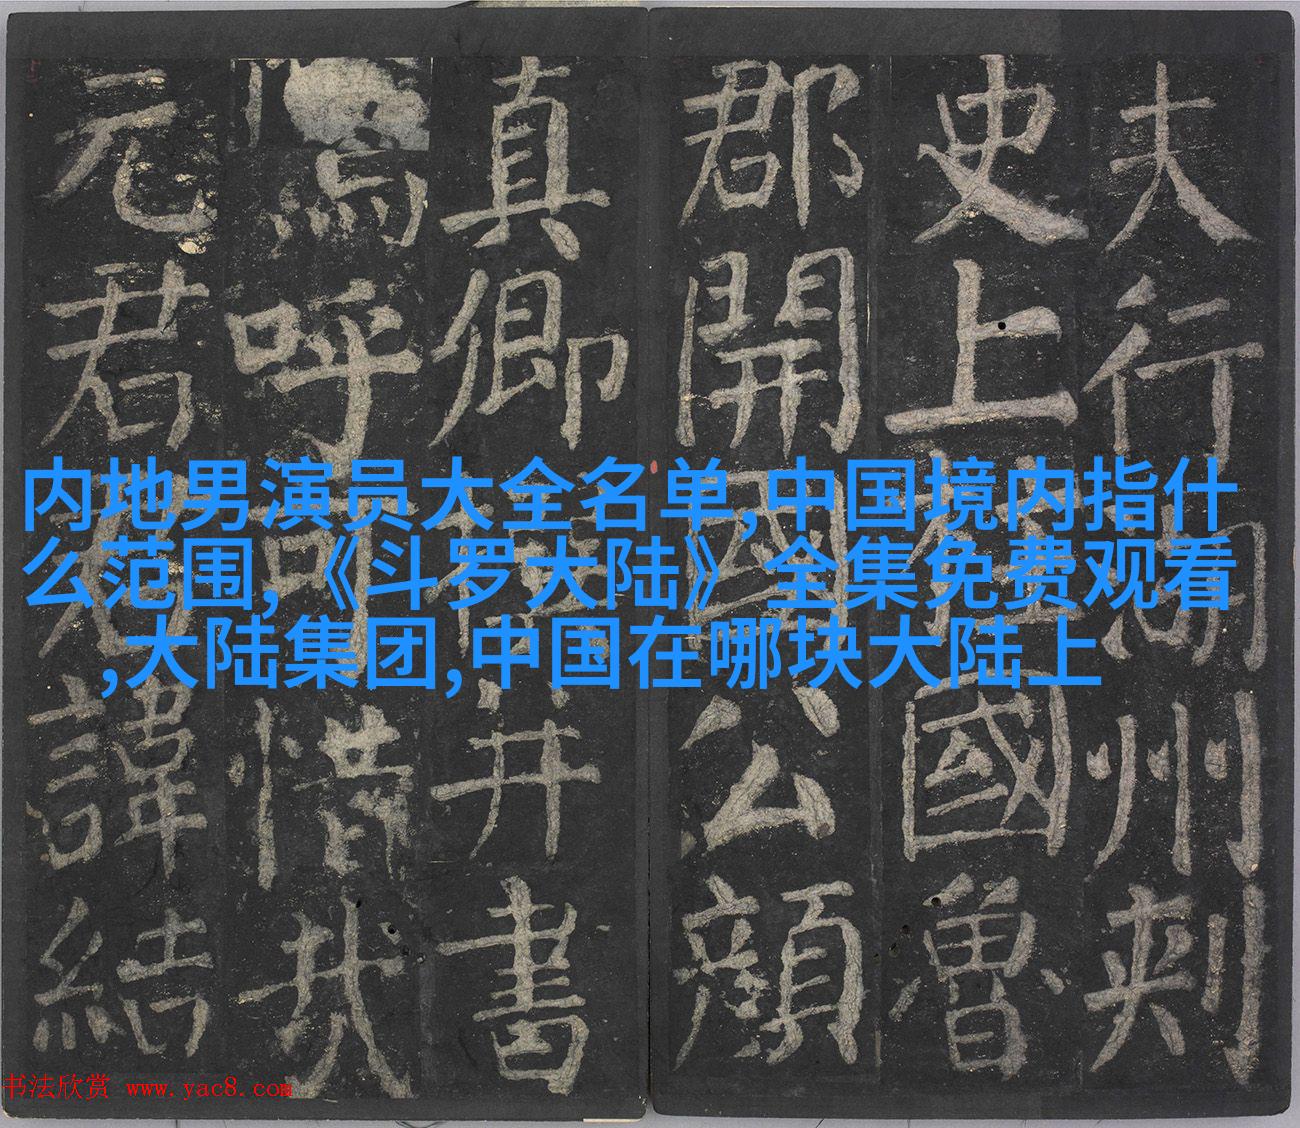 夫行湖州刺
史上柱國魯
郡開國公顏
真卿撰并書
嗚呼可惜哉
元君君諱結
内地男演员大全名单,中国境内指什
么范围,《斗罗大陆》全集免费观看
,大陆集团,中国在哪块大陆上
书法欣赏 www.yac8.com